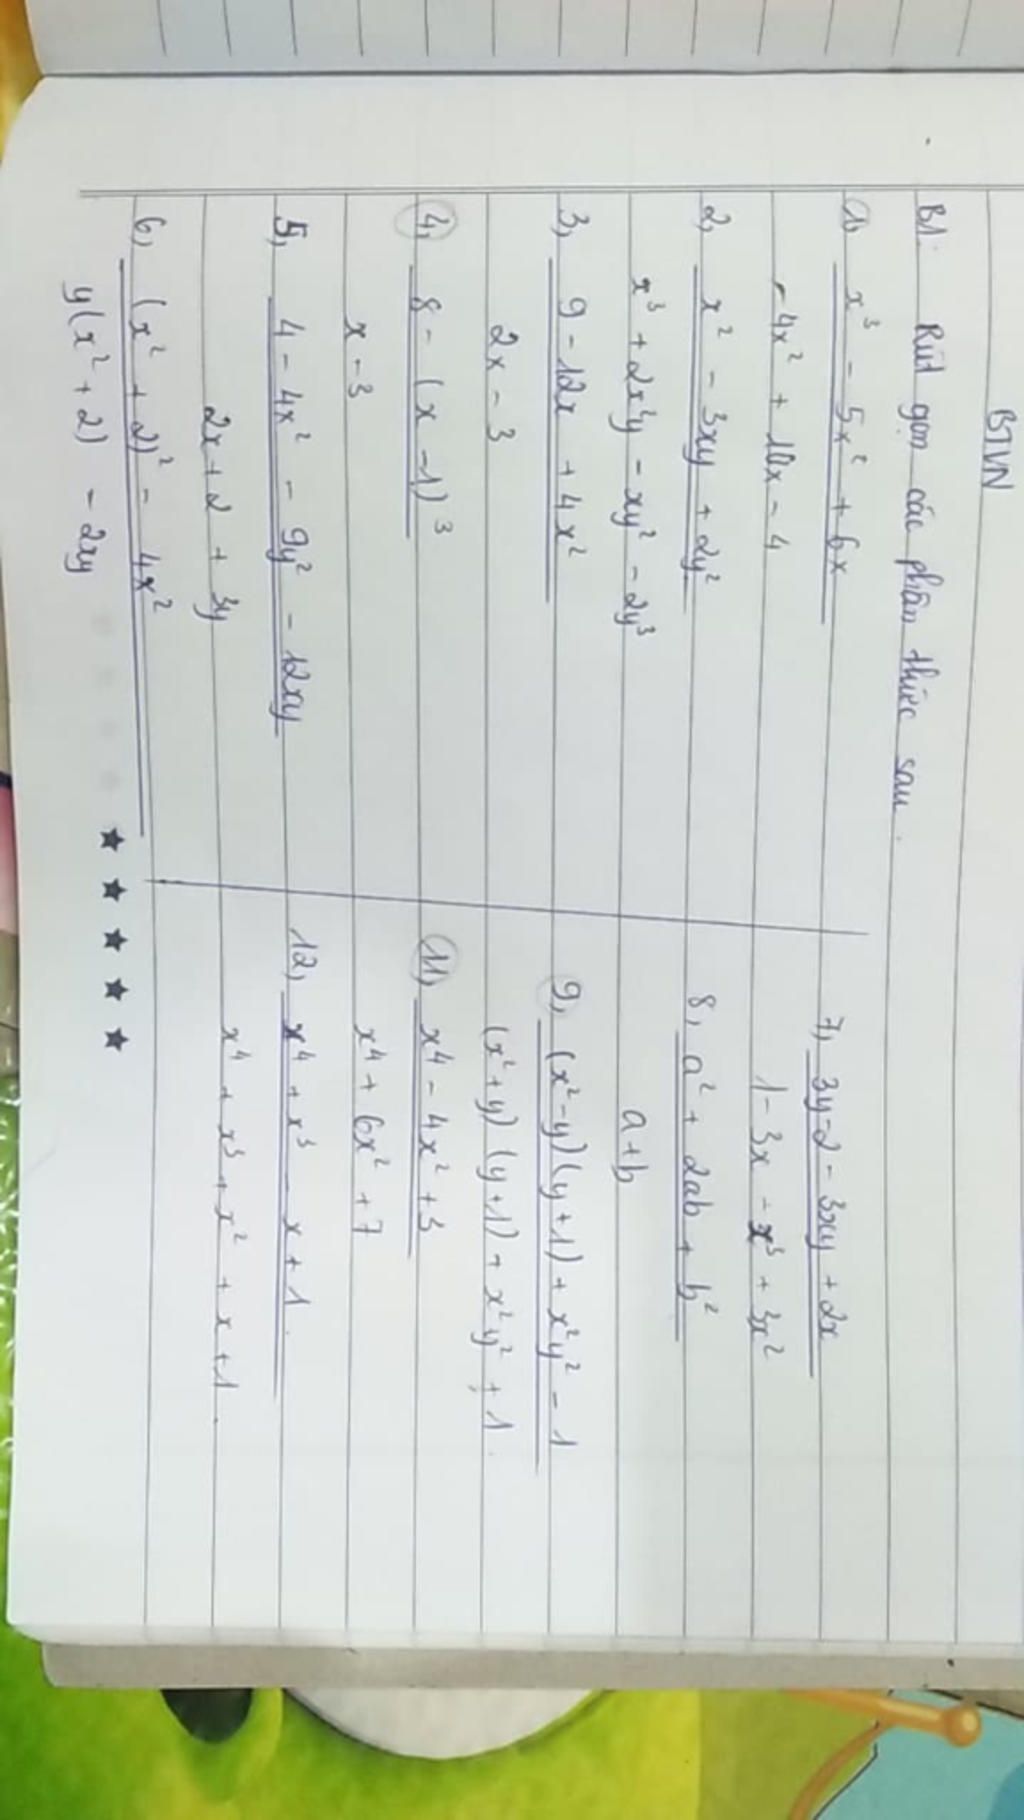 BTVN
B1: Rút gọn các phân thức sau.
1, x³ - 5x² + 6x
-4x² + 10x - 4
2, x² - 3xy + 2y²
x³ + 2x²y - xy² - 2y³
3, 9 - 12x + 4x²
2x - 3
4, 8 - (x - 1)³
x - 3
5, 4 - 4x² - 9y² - 12xy
2x + 2 + 3y
6, (x² + 2)² - 4x²
y(x² + 2) - 2xy
7, 3y - 2 - 3xy + 2x
1 - 3x - x³ + 3x²
8, a² + 2ab + b²
a + b
9, (x² - y)(y + 1) + x²y² - 1
(x² + y)(y + 1) + x²y² + 1.
11, x⁴ - 4x² + 3
x⁴ + 6x² + 7
12, x⁴ + x³ - x + 1.
x⁴ + x³ + x² + x + 1.